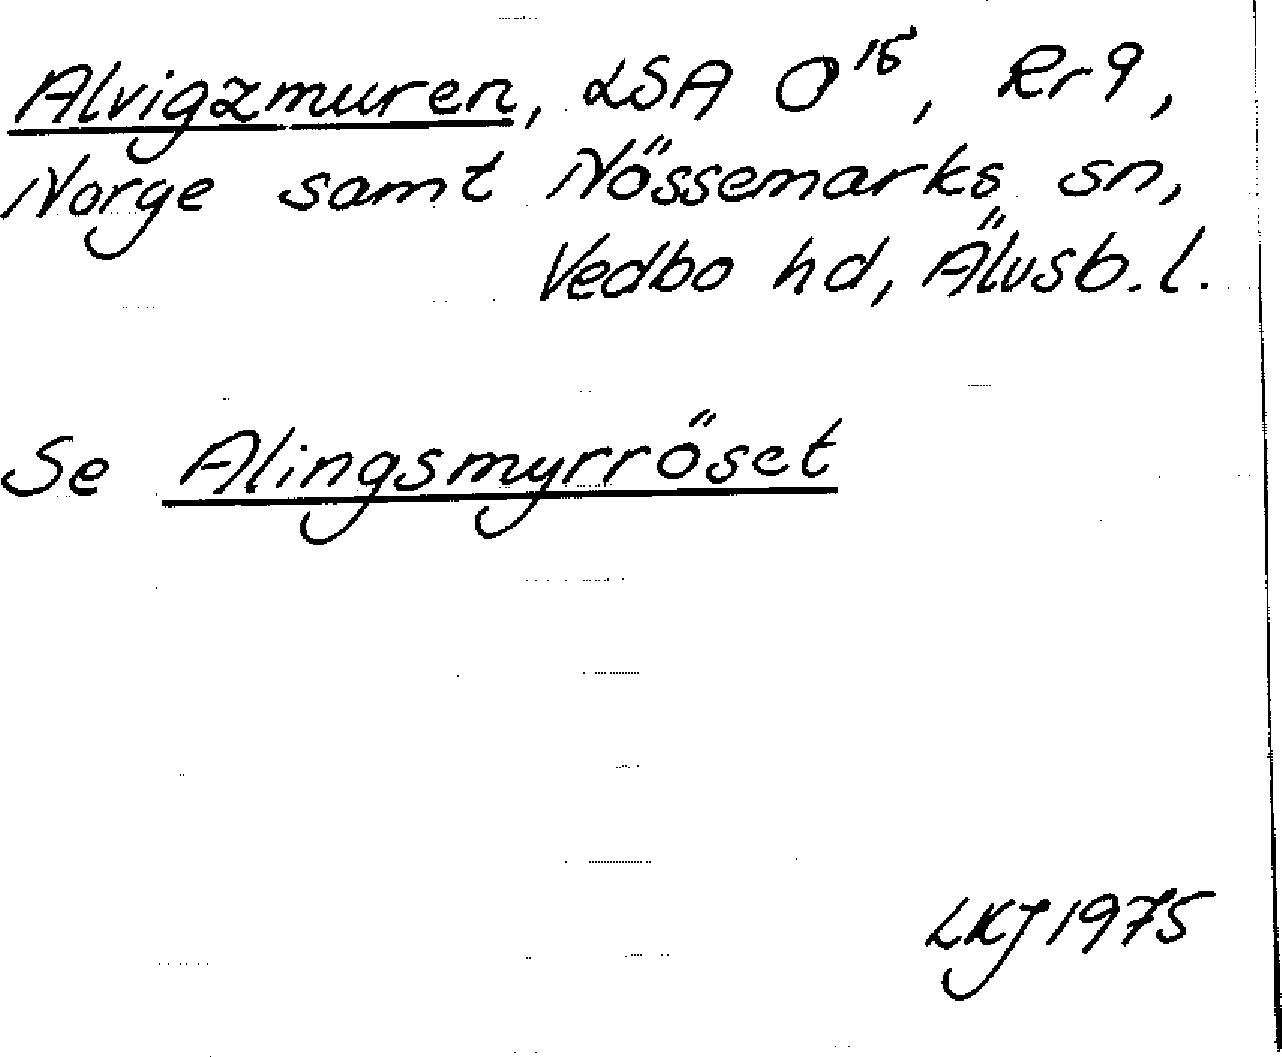 Alvigzmuren, LSA O¹⁵, Rr 9,
Norge samt Nössemarks sn,
Vedbo hd, Älvsb. l.
Se Alingsmyrröset
LKJ 1975